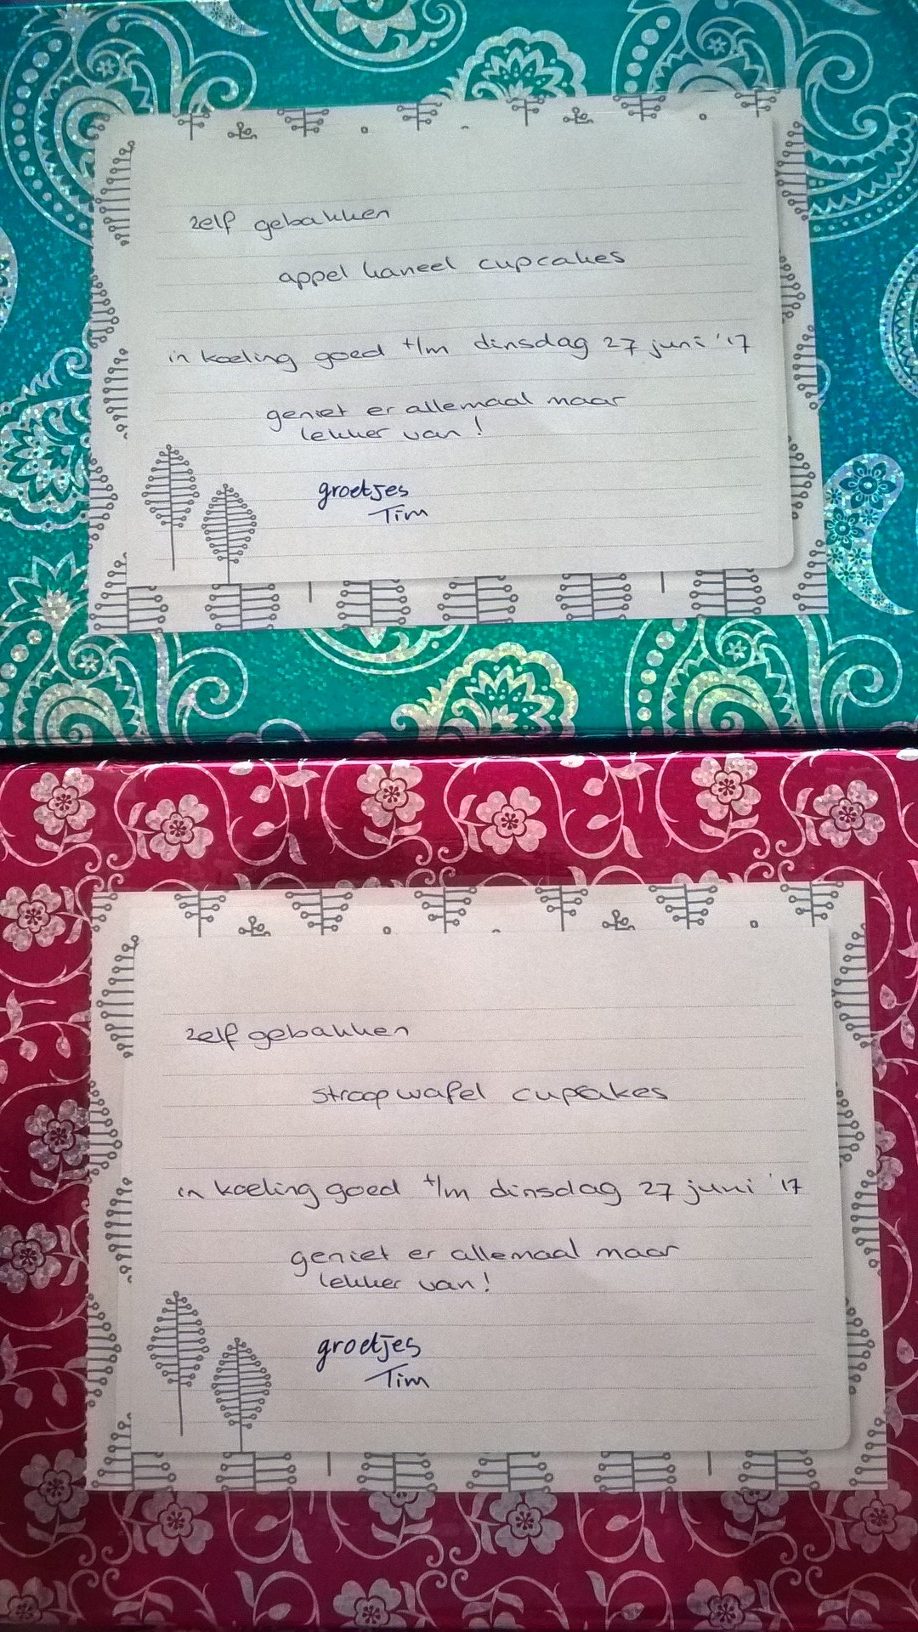 zelf gebakken
appel kaneel cupcakes
in koeling goed t/m dinsdag 27 juni '17
geniet er allemaal maar
lekker van!
groetjes
Tim
zelf gebakken
stroopwafel cupcakes
in koeling goed t/m dinsdag 27 juni '17
geniet er allemaal maar
lekker van!
groetjes
Tim